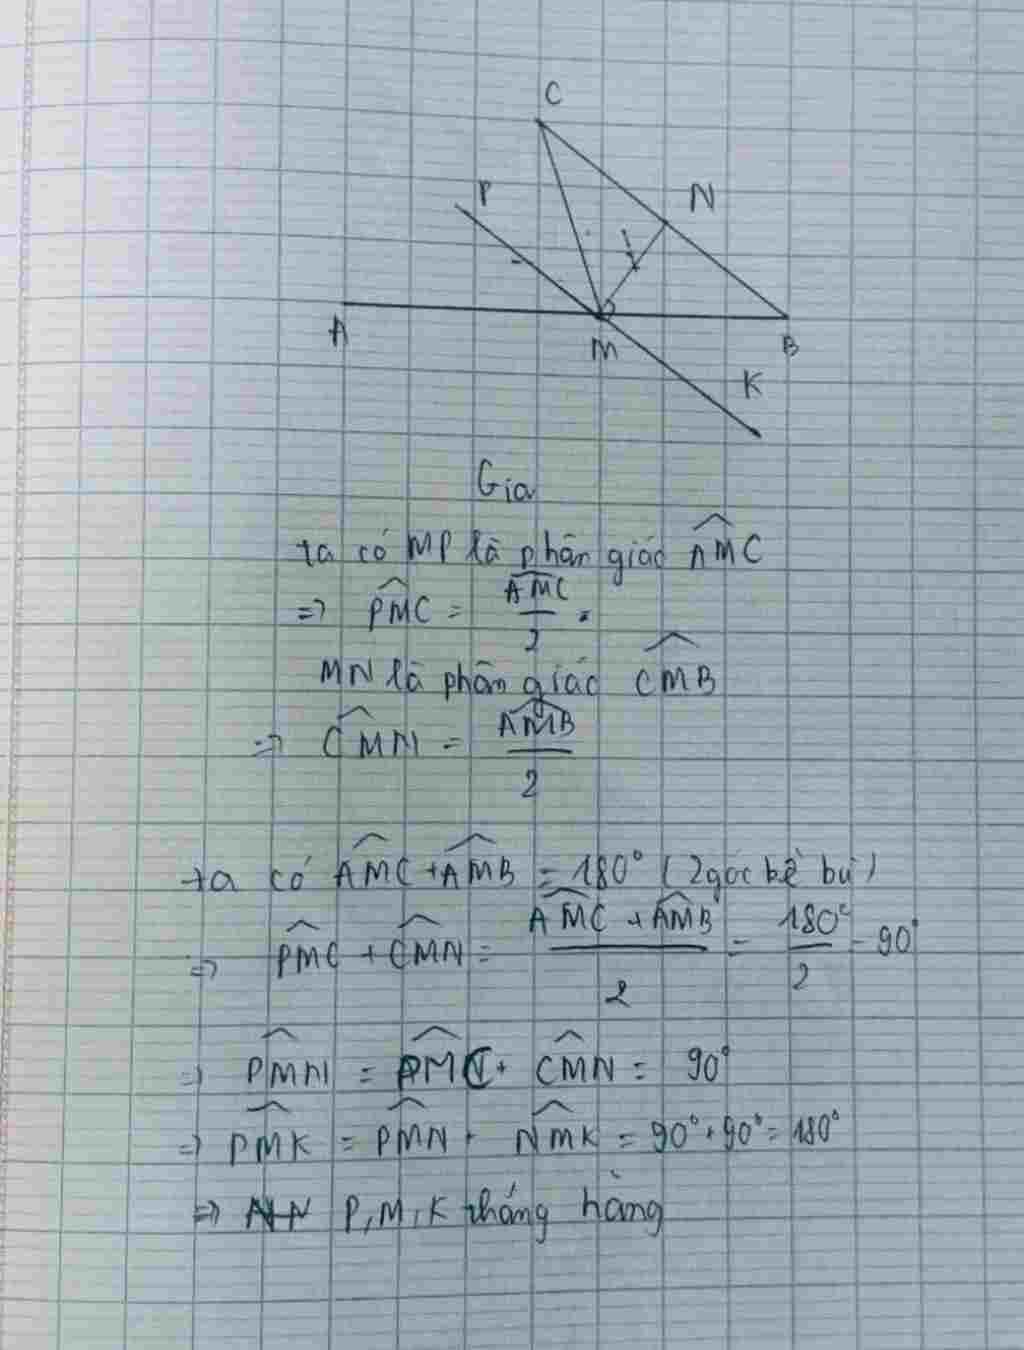 C
P
N
A
M
B
K
Giả
ta có MP là phân giác \widehat{AMC}
=> \widehat{PMC} = \frac{\widehat{AMC}}{2}.
MN là phân giác \widehat{CMB}
=> \widehat{CMN} = \frac{\widehat{AMB}}{2}
ta có \widehat{AMC} + \widehat{AMB} = 180° (2 góc kề bù)
=> \widehat{PMC} + \widehat{CMN} = \frac{\widehat{AMC} + \widehat{AMB}}{2} = \frac{180°}{2} = 90°
=> \widehat{PMN} = \widehat{PMC} + \widehat{CMN} = 90°
=> \widehat{PMK} = \widehat{PMN} + \widehat{NMK} = 90° + 90° = 180°
=> P, M, K thẳng hàng